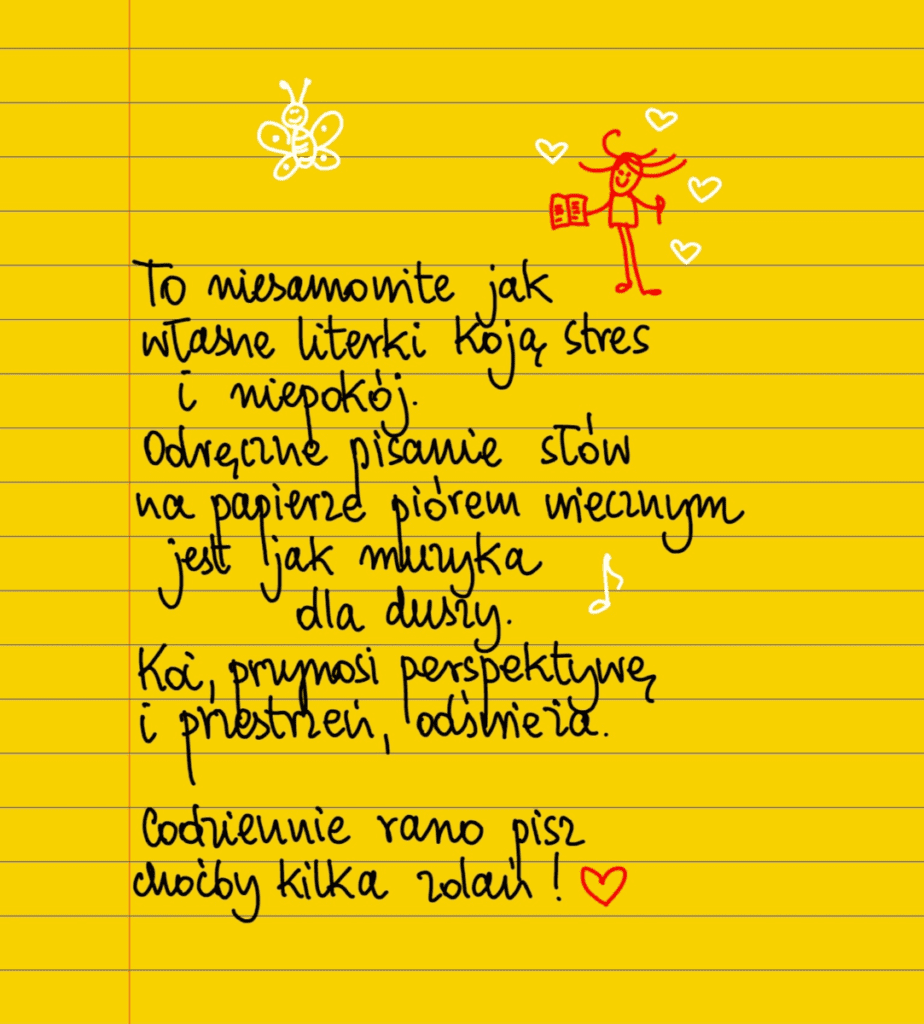 To niesamowite jak
własne literki koją stres
i niepokój.
Odręczne pisanie słów
na papierze piórem wiecznym
jest jak muzyka
dla duszy.
Koi, przynosi perspektywę
i przestrzeń, odświeża.
Codziennie rano pisz
choćby kilka zdań!